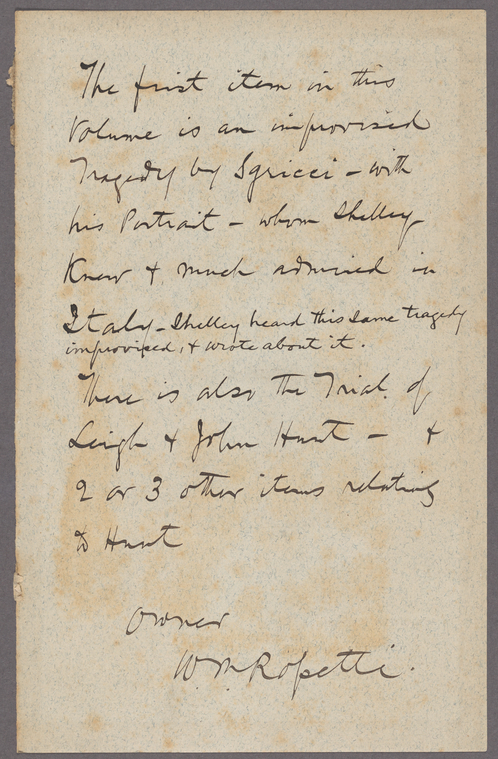 The first item in this
Volume is an improvised
Tragedy by Sgricci – with
his Portrait – whom Shelley
Knew & much admired in
Italy – Shelley heard this same tragedy
improvised, & wrote about it.
There is also the Trial of
Leigh & John Hunt – &
2 or 3 other items relating
to Hunt
Owner
W. M. Rossetti.